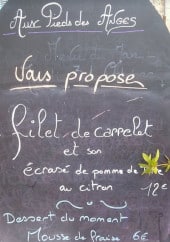 Aux Pieds des Anges
Vous propose
filet de carrelet
et son
écrasé de pomme de Terre
au citron 12€
Dessert du moment
Mousse de fraise 6€